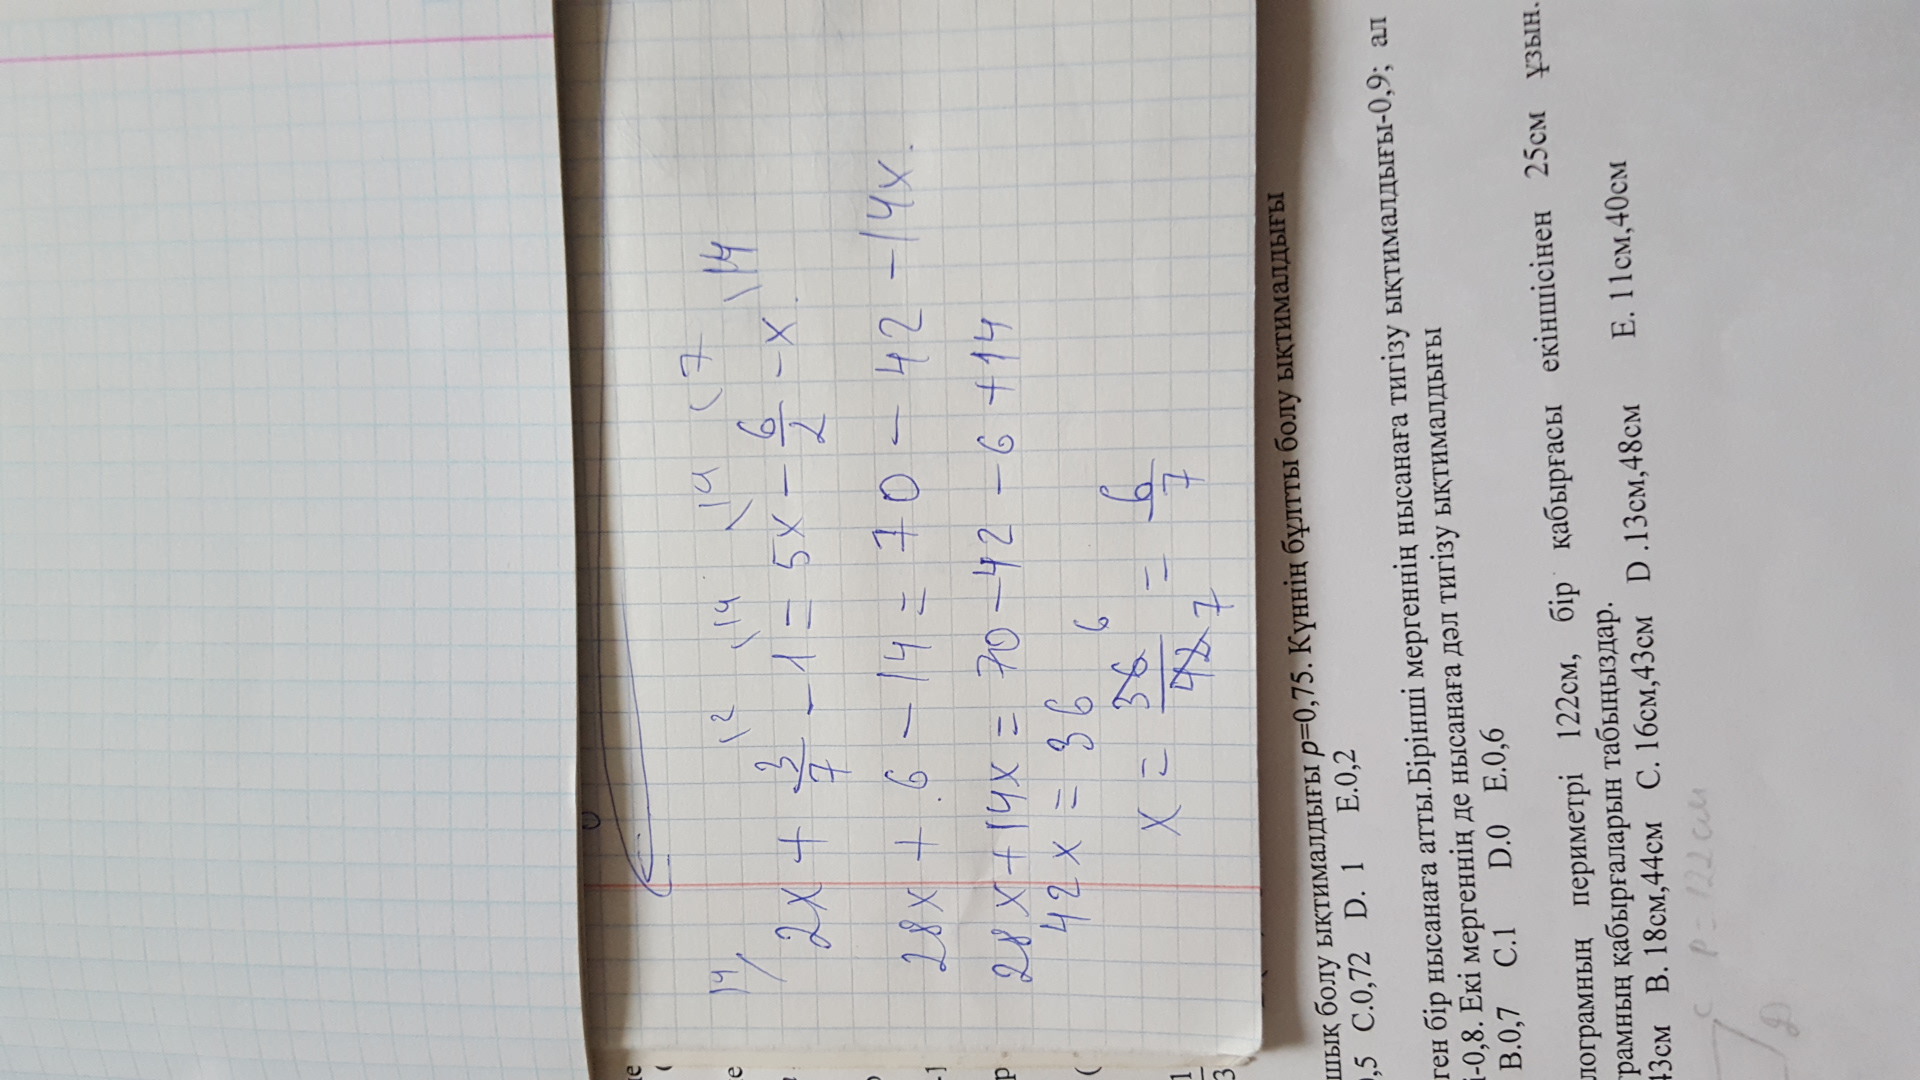 14/ \2 \14 \14 \7 \14
2x + 3/7 - 1 = 5x - 6/2 - x.
28x + 6 - 14 = 70 - 42 - 14x.
28x + 14x = 70 - 42 - 6 + 14
42x = 36
x = 36/42 = 6/7
6
7
шық болу ықтималдығы p=0,75. Күннің бұлтты болу ықтималдығы
0,5 C.0,72 D. 1 E.0,2
ген бір нысанаға атты.Бірінші мергеннің нысанаға тигізу ықтималдығы-0,9; ал
і-0,8. Екі мергеннің де нысанаға дәл тигізу ықтималдығы
B.0,7 C.1 D.0 E.0,6
лограмның периметрі 122см, бір қабырғасы екіншісінен 25см ұзын.
рамның қабырғаларын табыңыздар.
43см B. 18см,44см C. 16см,43см D .13см,48см E. 11см,40см
C P = 122 см
D